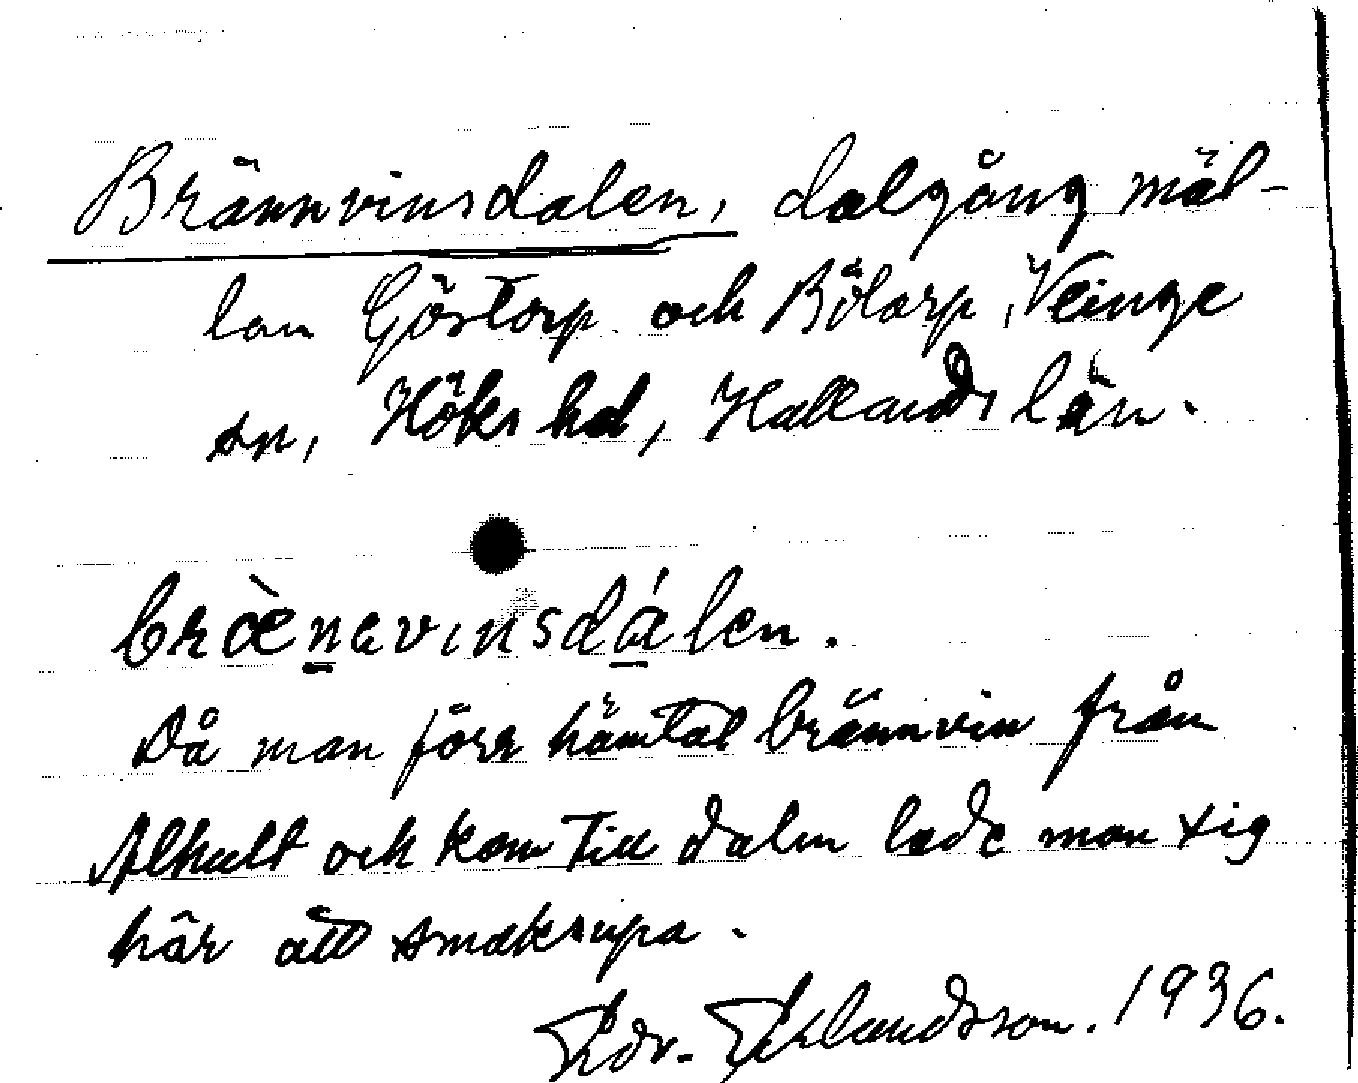 Brännvinsdalen, dalgång mäl-
lan Göstorp och Bölarp, Veinge
sn, Höks hd, Hallands län.
bræ̀nevinsdálen.
Då man förr hämtat brännvin från
Alhult och kom till dalen lade man sig
här att smaksupa.
Edv. Eklundsson. 1936.